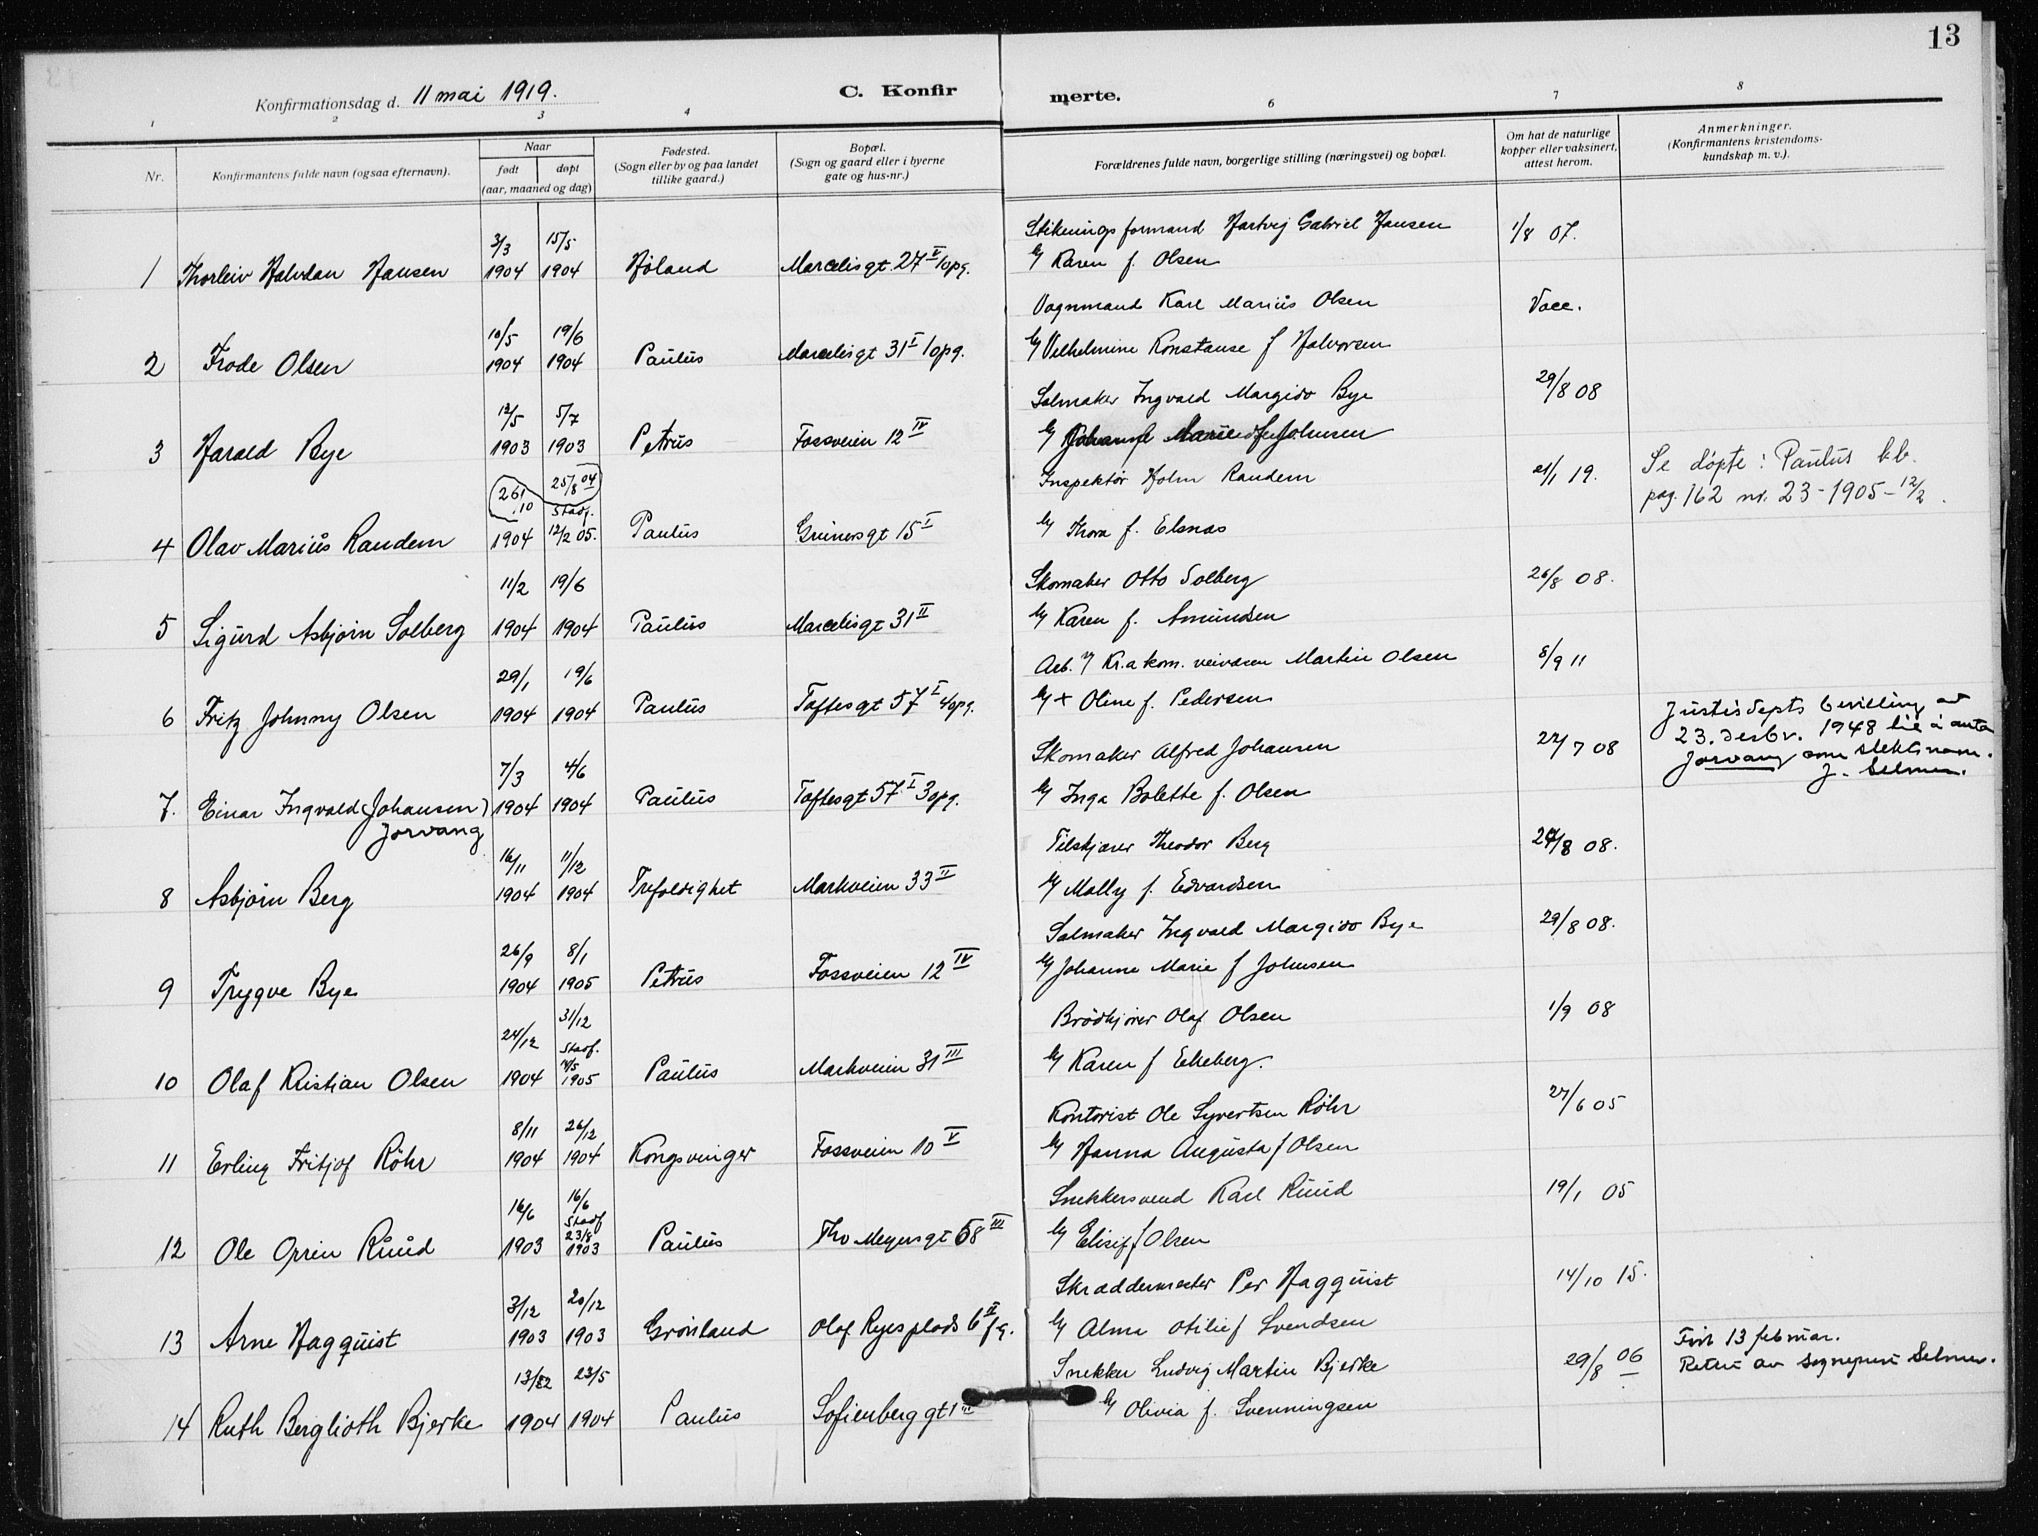 13
Konfirmationsdag d. 11 mai 1919.
C. Konfir
merte.
1 2 3 4 6 7 8
Nr.
Konfirmantens fulde navn (ogsaa efternavn).
Naar
født døpt
(aar, maaned og dag)
Fødested.
(Sogn eller by og paa landet
tillike gaard.)
Bopæl.
(Sogn og gaard eller i byerne
gate og hus-nr.)
Forældrenes fulde navn, borgerlige stilling (næringsvei) og bopæl.
Om hat de naturlige
kopper eller vaksinert,
attest herom.
Anmerkninger.
(Konfirmantens kristendoms-
kundskap m. v.).
3/3 15/5 Stikningsformand Hartvig Gabriel Hansen 1/8 07.
1 Thorleiv Halvdan Hansen 1904 1904 Høland Marcelisgt 27 II 1opg. & Karen f. Olsen
10/5 19/6 Vognmand Karl Marius Olsen Vacc.
2 Frode Olsen 1904 1904 Paulus Marcelisgt 31 I 1opg. & Vilhelmine Konstanse f Halvorsen
12/5 5/7 Salmaker Ingvald Margido Bye 29/8 08
3 Harald Bye 1903 1903 Petrus Fossveien 12 IV & Johanne Marie f Johnsen
26/10 25/8 04 Inspektør Holm Randem 21/1 19. Se døpte: Paulus kb.
stadf. pag. 162 nr. 23 - 1905 - 12/2.
4 Olav Marius Randem 1904 12/2 05. Paulus Grünersgt 15 I & Thora f. Elsnas
11/2 19/6 Skomaker Otto Solberg 26/8 08.
5 Sigurd Asbjørn Solberg 1904 1904 Paulus Marcelisgt 31 II & Karen f. Amundsen
29/1 19/6 Arb. v Kr.a kom. veivæsen Martin Olsen 8/9 11
6 Fritz Johnny Olsen 1904 1904 Paulus Toftesgt 57 I 4opg. & + Oline f. Pedersen
7/3 4/6 Skomaker Alfred Johansen 22/7 08 Justisdepts bevilling av
23. desbr. 1948 til å anta
Jorvang som slektsnavn.
J. Selmer.
7. Einar Ingvald (Johansen) 1904 1904 Paulus Toftesgt 57 I 3opg. & Inga Bolette f. Olsen
Jorvang
16/11 11/12 Tilskjærer Theodor Berg 24/8 08.
8 Asbjørn Berg 1904 1904 Trefoldighet Markveien 33 II & Molly f. Edvardsen
26/9 8/1 Salmaker Ingvald Margido Bye 29/8 08.
9 Trygve Bye 1904 1905 Petrus Fossveien 12 IV & Johanne Marie f Johnsen
24/12 31/12 Brødkjører Olaf Olsen 1/9 08
stadf.
14/5
10 Olaf Kristian Olsen 1904 1905 Paulus Markveien 31 III & Karen f Ekeberg.
8/11 26/12 Kontorist Ole Syvertsen Röhr 27/6 05
11 Erling Fritjof Röhr 1904 1904 Kongsvinger Fossveien 10 V & Hanna Augusta f Olsen
16/6 16/6 Snekkersvend Karl Ruud 19/1 05
stadf
23/8
12 Ole Orrin Ruud 1903 1903 Paulus Thv Meyersgt 58 III & Elisif f Olsen
3/12 20/12 Skræddermester Per Hagquist 14/10 15.
13 Arne Hagquist 1903 1903 Grønland Olaf Ryes plads 6 II & Alma Otilie f Svendsen
13/2 23/5 Snekker Ludvig Martin Bjerke 29/8 06 Født 13 februar.
Rettet av sogneprest Selmer.
14 Ruth Berglioth Bjerke 1904 1904 Paulus Sofienberggt 1 III & Olivia f. Svenningsen